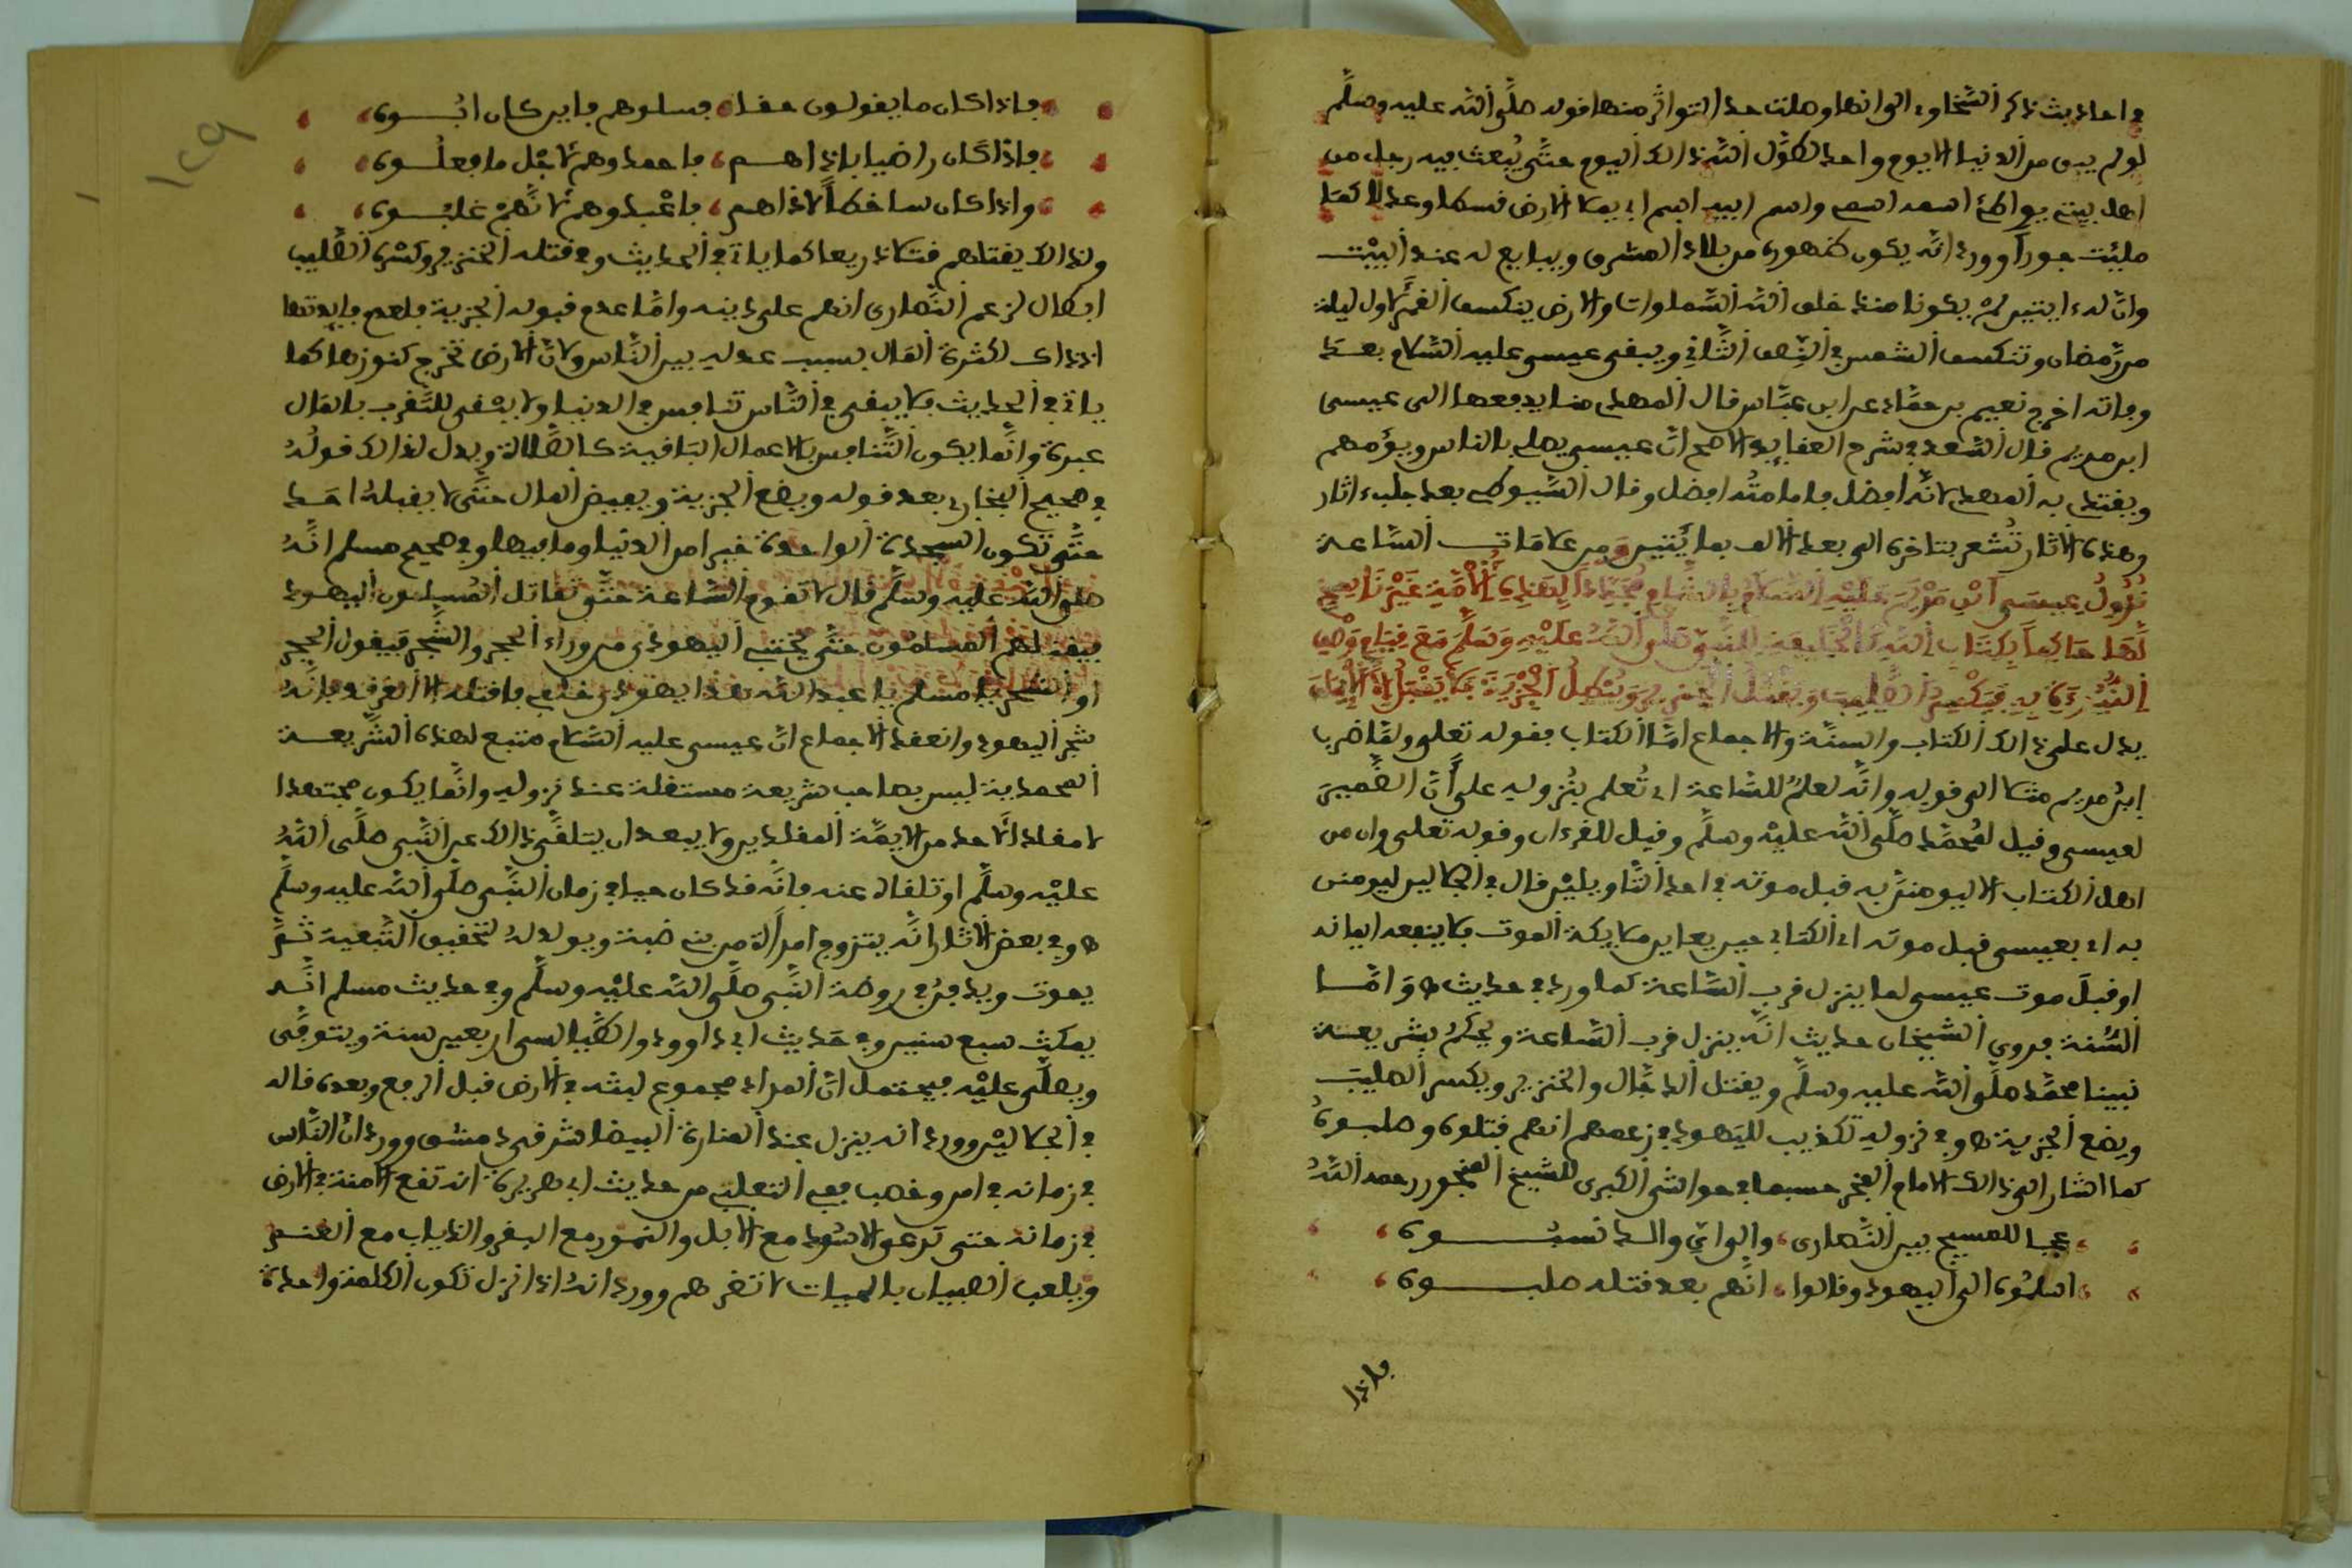 في احاديث ذكر السخاوي انها وصلت حد التواتر منها قوله صلى الله عليه وسلم
لو لم يبق من الدنيا الا يوم واحد لطول الله ذالك اليوم حتى يبعث فيه رجل من
اهل بيتي يواطئ اسمه اسمي واسم ابيه اسم ابي يملا الارض قسطا وعدلا كما
ملئت جورا وورد انه يكون ظهوره من بلاد المشرق ويبايع له عند البيت
وان له ءايتين لم يكونا منذ خلق الله السماوات والارض ينكسف القمر لاول ليلة
من رمضان وتنكسف الشمس في النصف الثاني ويبقى عيسى عليه السلام بعد
وفاته اخرج نعيم بن حماد عن ابن عباس قال المهدي منا يدفعها الى عيسى
ابن مريم قال السعد في شرح العقايد الاصح ان عيسى يصلي بالناس ويؤمهم
ويقتدي به المهدي لانه افضل فامامته افضل وقال السيوطي بعد جلبه ءاثار
وهذه الاثار تشعر بتاخره الى بعد الالف بمايتين ومن علامات الساعة
نزول عيسى ابن مريم عليه السلام بالشام مجددا لهذه الامة غير ناسخ
لها حاكما بكتاب الله كالخليفة للنبي صلى الله عليه وسلم مع قيام وصف
النبوءة به فيكسر الصليب ويقتل الخنزير ويبطل الجزية فلا يقبل الا الايمان
يدل على ذالك الكتاب والسنة والاجماع اما الكتاب فقوله تعلى ولما ضرب
ابن مريم مثلا الى قوله وانه لعلم للساعة اي تعلم بنزوله على ان الضمير
لعيسى وقيل لمحمد صلى الله عليه وسلم وقيل للقرءان وقوله تعلى وان من
اهل الكتاب الا ليومنن به قبل موته في احد التاويلين قال في الجلالين ليومنن
به اي بعيسى قبل موته اي الكتابي حين يعاين ملايكة الموت فلا ينفعه ايمانه
او قبل موت عيسى لما ينزل قرب الساعة كما ورد في حديث ه واما
السنة فروى الشيخان حديث انه ينزل قرب الساعة ويحكم بشريعة
نبينا محمد صلى الله عليه وسلم ويقتل الدجال والخنزير ويكسر الصليب
ويضع الجزية ه وفي نزوله تكذيب لليهود في زعمهم انهم قتلوه وصلبوه
كما اشار الى ذالك الامام الفخر حسبما في حواشي الكبرى للشيخ المنجور رحمه الله
عجبا للمسيح بين النصارى والى اي والد نسبوه
اسلموه الى اليهود وقالوا انهم بعد قتله صلبوه
فاذا
١٢٩
فاذا كان ما يقولون حقا فسلوهم فاين كان ابوه
فاذا كان راضيا باذاهم فاحمدوهم لاجل ما فعلوه
واذا كان ساخطا لاذاهم فاعبدوهم لانهم غلبوه
ولذالك يقتلهم قتلا ذريعا كما ياتي في الحديث وفي قتله الخنزير وكسره الصليب
ابطال لزعم النصارى انهم على دينه واما عدم قبوله الجزية فلعدم فايدتها
اذذاك لكثرة المال بسبب عدله بين الناس ولان الارض تخرج كنوزها كما
ياتي في الحديث فلا يبقى في الناس تنافس في الدنيا ولا يبقى للتقرب بالمال
عبرة وانما يكون التنافس بالاعمال الباقية كالصلاة ويدل لذالك قوله
في صحيح البخاري بعد قوله ويضع الجزية ويفيض المال حتى لا يقبله احد
حتى تكون السجدة الواحدة خير امن الدنيا وما فيها وفي صحيح مسلم انه
صلى الله عليه وسلم قال لا تقوم الساعة حتى تقاتل المسلمون اليهود
فيقتلهم المسلمون حتى يختبئ اليهودي من وراء الحجر والشجر فيقول الحجر
او الشجر يا مسلم يا عبد الله هذا يهودي خلفي فاقتله الا الغرقد فانه
شجر اليهود وانعقد الاجماع ان عيسى عليه السلام متبع لهذه الشريعة
المحمدية ليس بصاحب شريعة مستقلة عند نزوله وانما يكون مجتهدا
لا مقلدا لاحد من الايمة المقلدين ولا يبعد ان يتلقى ذالك عن النبي صلى الله
عليه وسلم او تلقاه عنه فانه قد كان حيا في زمان النبي صلى الله عليه وسلم
ه وفي بعض الاثار انه يتزوج امراة من بني ضبة ويولد له لتحقيق التبعية ثم
يموت ويدفن في روضة النبي صلى الله عليه وسلم وفي حديث مسلم انه
يمكث سبع سنين وفي حديث ابي داوود والطيالسي اربعين سنة ويتوفى
ويصلى عليه فيحتمل ان المراد مجموع لبثه في الارض قبل الرفع وبعده قاله
في الجلالين وورد انه ينزل عند المنارة البيضا شرقي دمشق وورد ان الناس
في زمانه في امن وخصب ففي الثعلبي من حديث ابي هريرة انه تقع الامنة في الارض
في زمانه حتى ترعى الاسود مع الابل والنمور مع البقر والذياب مع الغنم
ويلعب الصبيان بالحيات لا تضرهم وورد انه اذا نزل تكون الكلمة واحدة